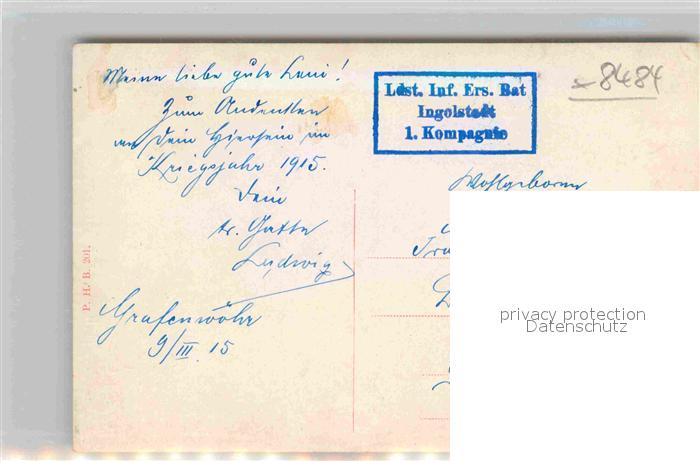 Meine liebe gute Leni!
Zum Andenken
an Dein Hiersein im
Kriegsjahr 1915.
Dein
tr. Gatte
Ludwig
Grafenwöhr
9/III. 15
Ldst. Inf. Ers. Bat
Ingolstadt
1. Kompagnie
8484
Wohlgeboren
P. H. B. 201.
privacy protection
Datenschutz